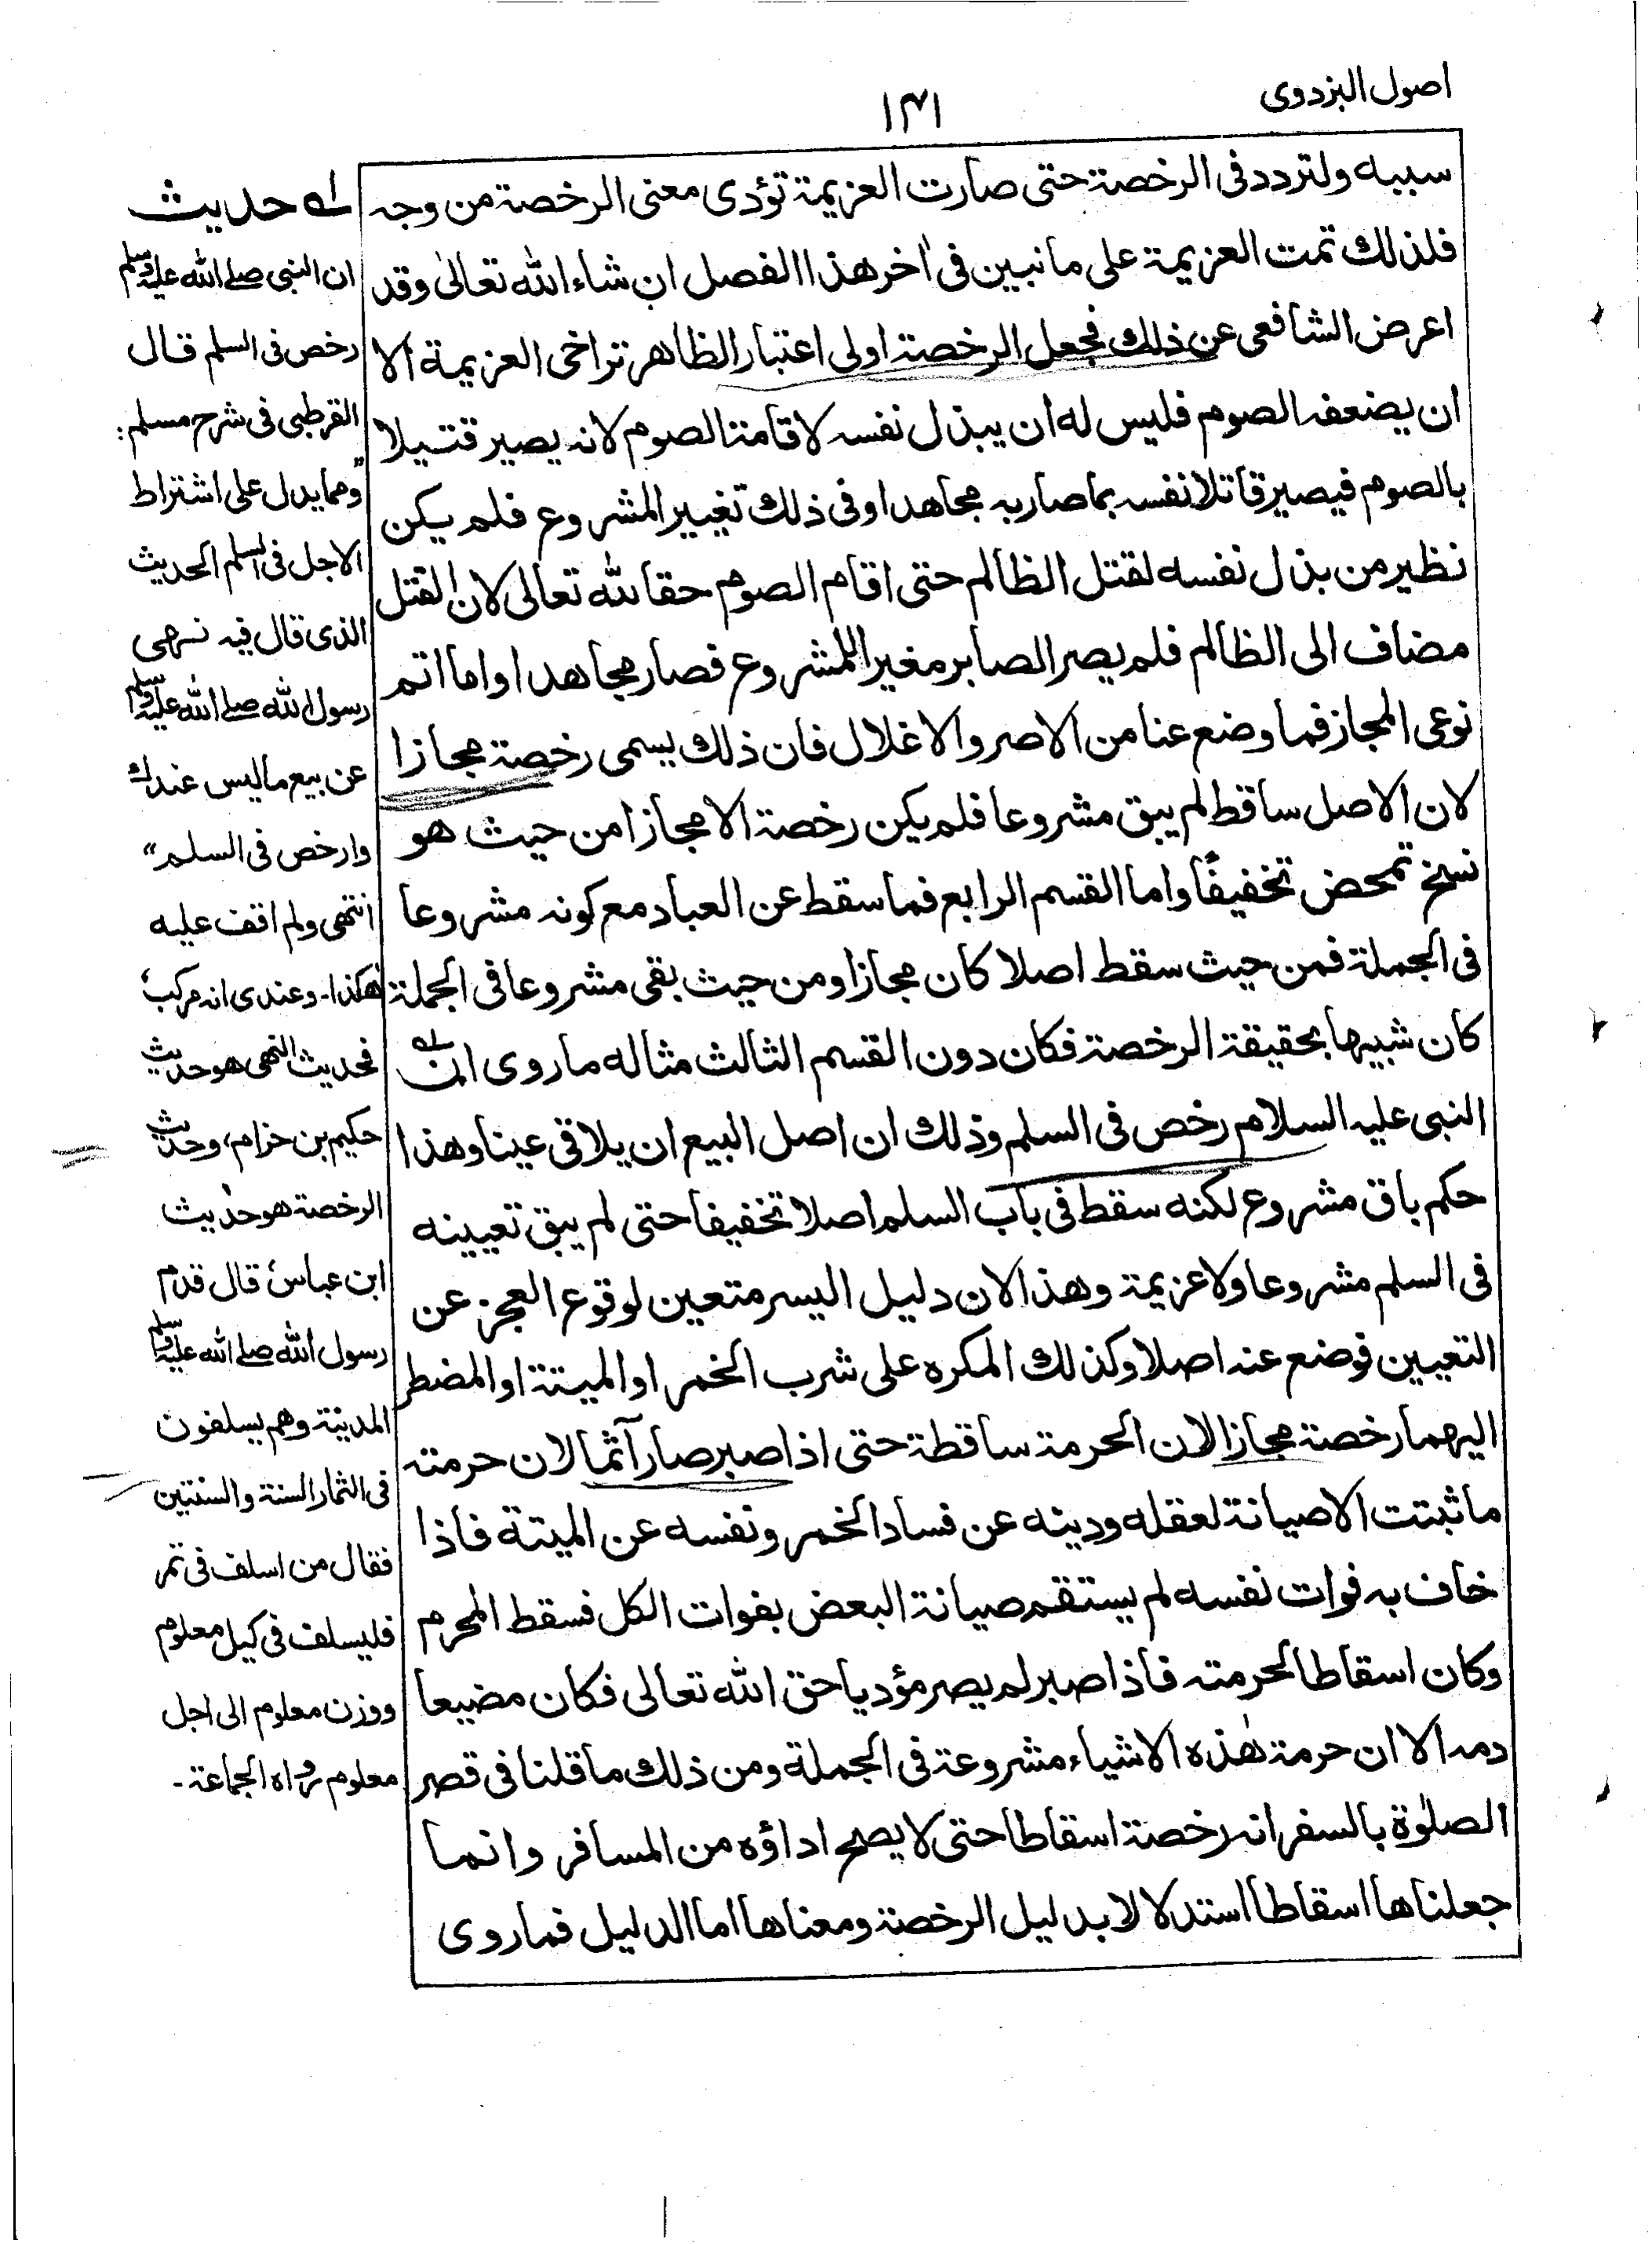 اصول البزدوی
١٤١
سببه ولتردد فی الرخصة حتی صارت العزیمة تؤدی معنی الرخصة من وجه
فلذلك تمت العزیمة علی ما نبین فی اٰخر هذا الفصل ان شاء الله تعالیٰ وقد
اعرض الشافعی عن ذلك فجعل الرخصة اولی اعتبار الظاهر تراخی العزیمة الا
ان یضعفه الصوم فلیس له ان یبذل نفسه لاقامة الصوم لانه یصیر قتیلا
بالصوم فیصیر قاتلا نفسه بما صار به مجاهدا وفی ذلك تغییر المشروع فلم یکن
نظیر من بذل نفسه لقتل الظالم حتی اقام الصوم حقا لله تعالی لان القتل
مضاف الی الظالم فلم یصر الصابر مغیرا للمشروع فصار مجاهدا واما اتم
نوعی المجاز فما وضع عنا من الاصر والاغلال فان ذلك یسمی رخصة مجازا
لان الاصل ساقط لم یبق مشروعا فلم یکن رخصة الا مجازا من حیث هو
نسخ تمحض تخفیفًا واما القسم الرابع فما سقط عن العباد مع کونه مشروعا
فی الجملة فمن حیث سقط اصلا کان مجازا ومن حیث بقی مشروعا فی الجملة
کان شبیها بحقیقة الرخصة فکان دون القسم الثالث مثاله ما روی ان
النبی علیه السلام رخص فی السلم وذلك ان اصل البیع ان یلاقی عینا وهذا
حکم باق مشروع لکنه سقط فی باب السلم اصلا تخفیفا حتی لم یبق تعیینه
فی السلم مشروعا ولا عزیمة وهذا لان دلیل الیسر متعین لوقوع العجز عن
التعیین فوضع عنه اصلا وکذلك المکره علی شرب الخمر او المیتة او المضطر
الیهما رخصة مجازا لان الحرمة ساقطة حتی اذا صبر صار آثما لان حرمته
ما ثبتت الا صیانة لعقله ودینه عن فساد الخمر ونفسه عن المیتة فاذا
خاف به فوات نفسه لم یستقم صیانة البعض بفوات الکل فسقط المحرم
وکان اسقاطا لحرمته فاذا صبر لم یصر مؤدیا حق الله تعالی فکان مضیعا
دمه الا ان حرمة هٰذه الاشیاء مشروعة فی الجملة ومن ذلك ما قلنا فی قصر
الصلوٰة بالسفر انه رخصة اسقاطا حتی لا یصح اداؤه من المسافر وانما
جعلناها اسقاطا استدلالا بدلیل الرخصة ومعناها اما الدلیل فما روی
له حدیث
ان النبی صلے الله علیه وسلم
رخص فی السلم قال
القرطبی فی شرح مسلم:
"ومما یدل علی اشتراط
الاجل فی السلم الحدیث
الذی قال فیه نهی
رسول الله صلے الله علیه وسلم
عن بیع ما لیس عندك
وارخص فی السلم"
انتهی ولم اقف علیه
هکذا۔ وعندی انه مرکب،
فحدیث النهی هو حدیث
حکیم بن حزام، وحدیث
الرخصة هو حدیث
ابن عباس قال قدم
رسول الله صلے الله علیه وسلم
المدینة وهم یسلفون
فی الثمار السنة والسنتین
فقال من اسلف فی تمر
فلیسلف فی کیل معلوم
ووزن معلوم الی اجل
معلوم رواه الجماعة۔